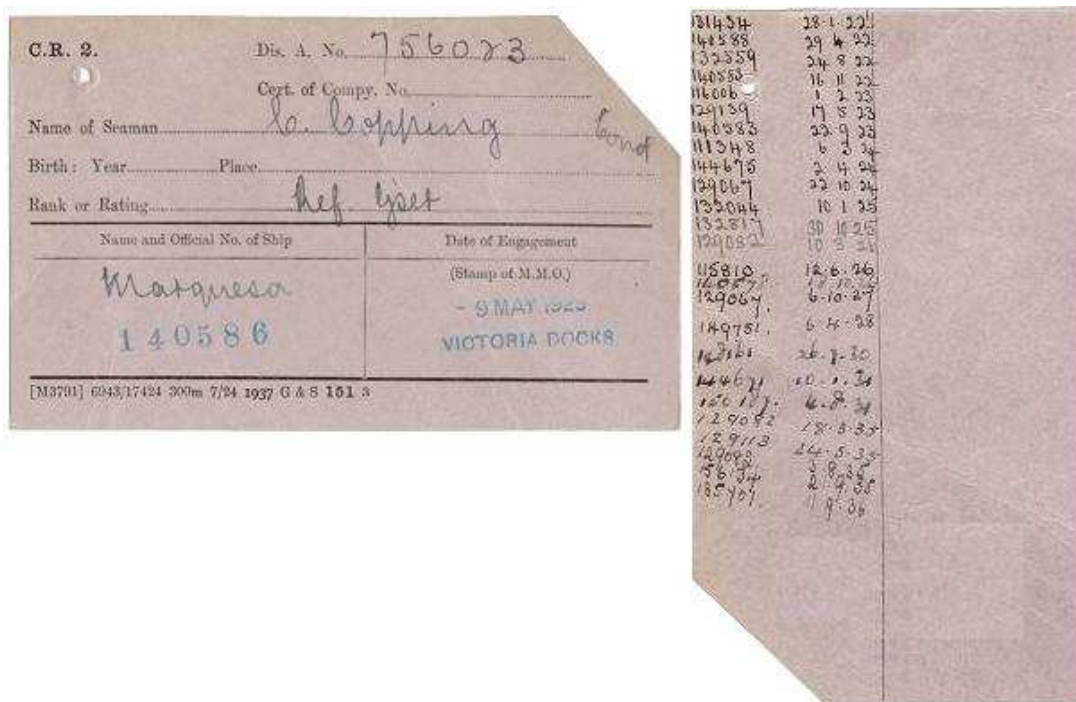 C.R. 2.
Dis. A. No. 756023
Cert. of Compy. No.
Name of Seaman C. Copping
Birth: Year Place
Rank or Rating Ref.
Name and Official No. of Ship
Date of Engagement
Marquesa
(Stamp of M.M.O.)
140586
- 9 MAY
VICTORIA DOCKS
[M3791] 6943/17424 300m 7/24 1937 G & S 151 3
131434 28.1.22
140588 29 4 22
132559 24 8 22
140583 16 11 22
116006 1 2 23
129139 17 5 23
140583 22 9 23
111348 6 2 24
144675 2 4 24
129067 22 10 24
132044 10 1 25
132817 30 10 25
129082 10 3 26
115810 12.6.26
129067. 6.10.27
149751. 6.4.28
26.9.30
144671
6.8.31
129082 18.3.35
129113 24.5.35
129092
2.9.35
185707. 1 9.36